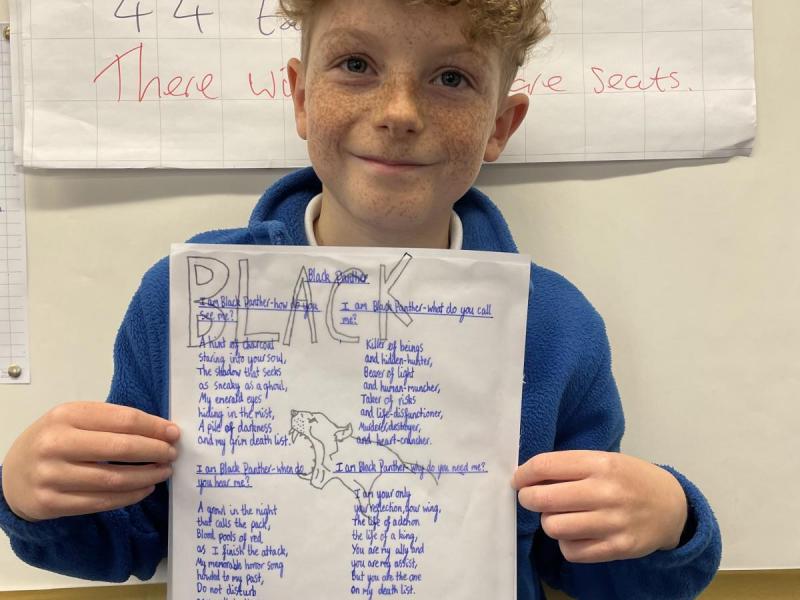 44
There are seats.
BLACK
Black Panther
I am Black Panther-how do you
see me?
A hint of charcoal
staring into your soul,
The shadow that seeks
as sneaky as a ghoul,
My emerald eyes
hiding in the mist,
A pile of darkness
and my grim death list.
I am Black Panther-what do you call
me?
Killer of beings
and hidden-hunter,
Bearer of light
and human-muncher,
Taker of risks
and life-disfunctioner,
Murder,destroyer,
and heart-cruncher.
I am Black Panther-when do
you hear me?
A growl in the night
that calls the pack,
Blood pools of red
as I finish the attack,
My memorable horror song
howled to my past,
Do not disturb
I am Black Panther-why do you need me?
I am your only
your reflection, your wing,
The life of
the life of a king,
You are my ally and
you are my assist,
But you are the one
on my death list.